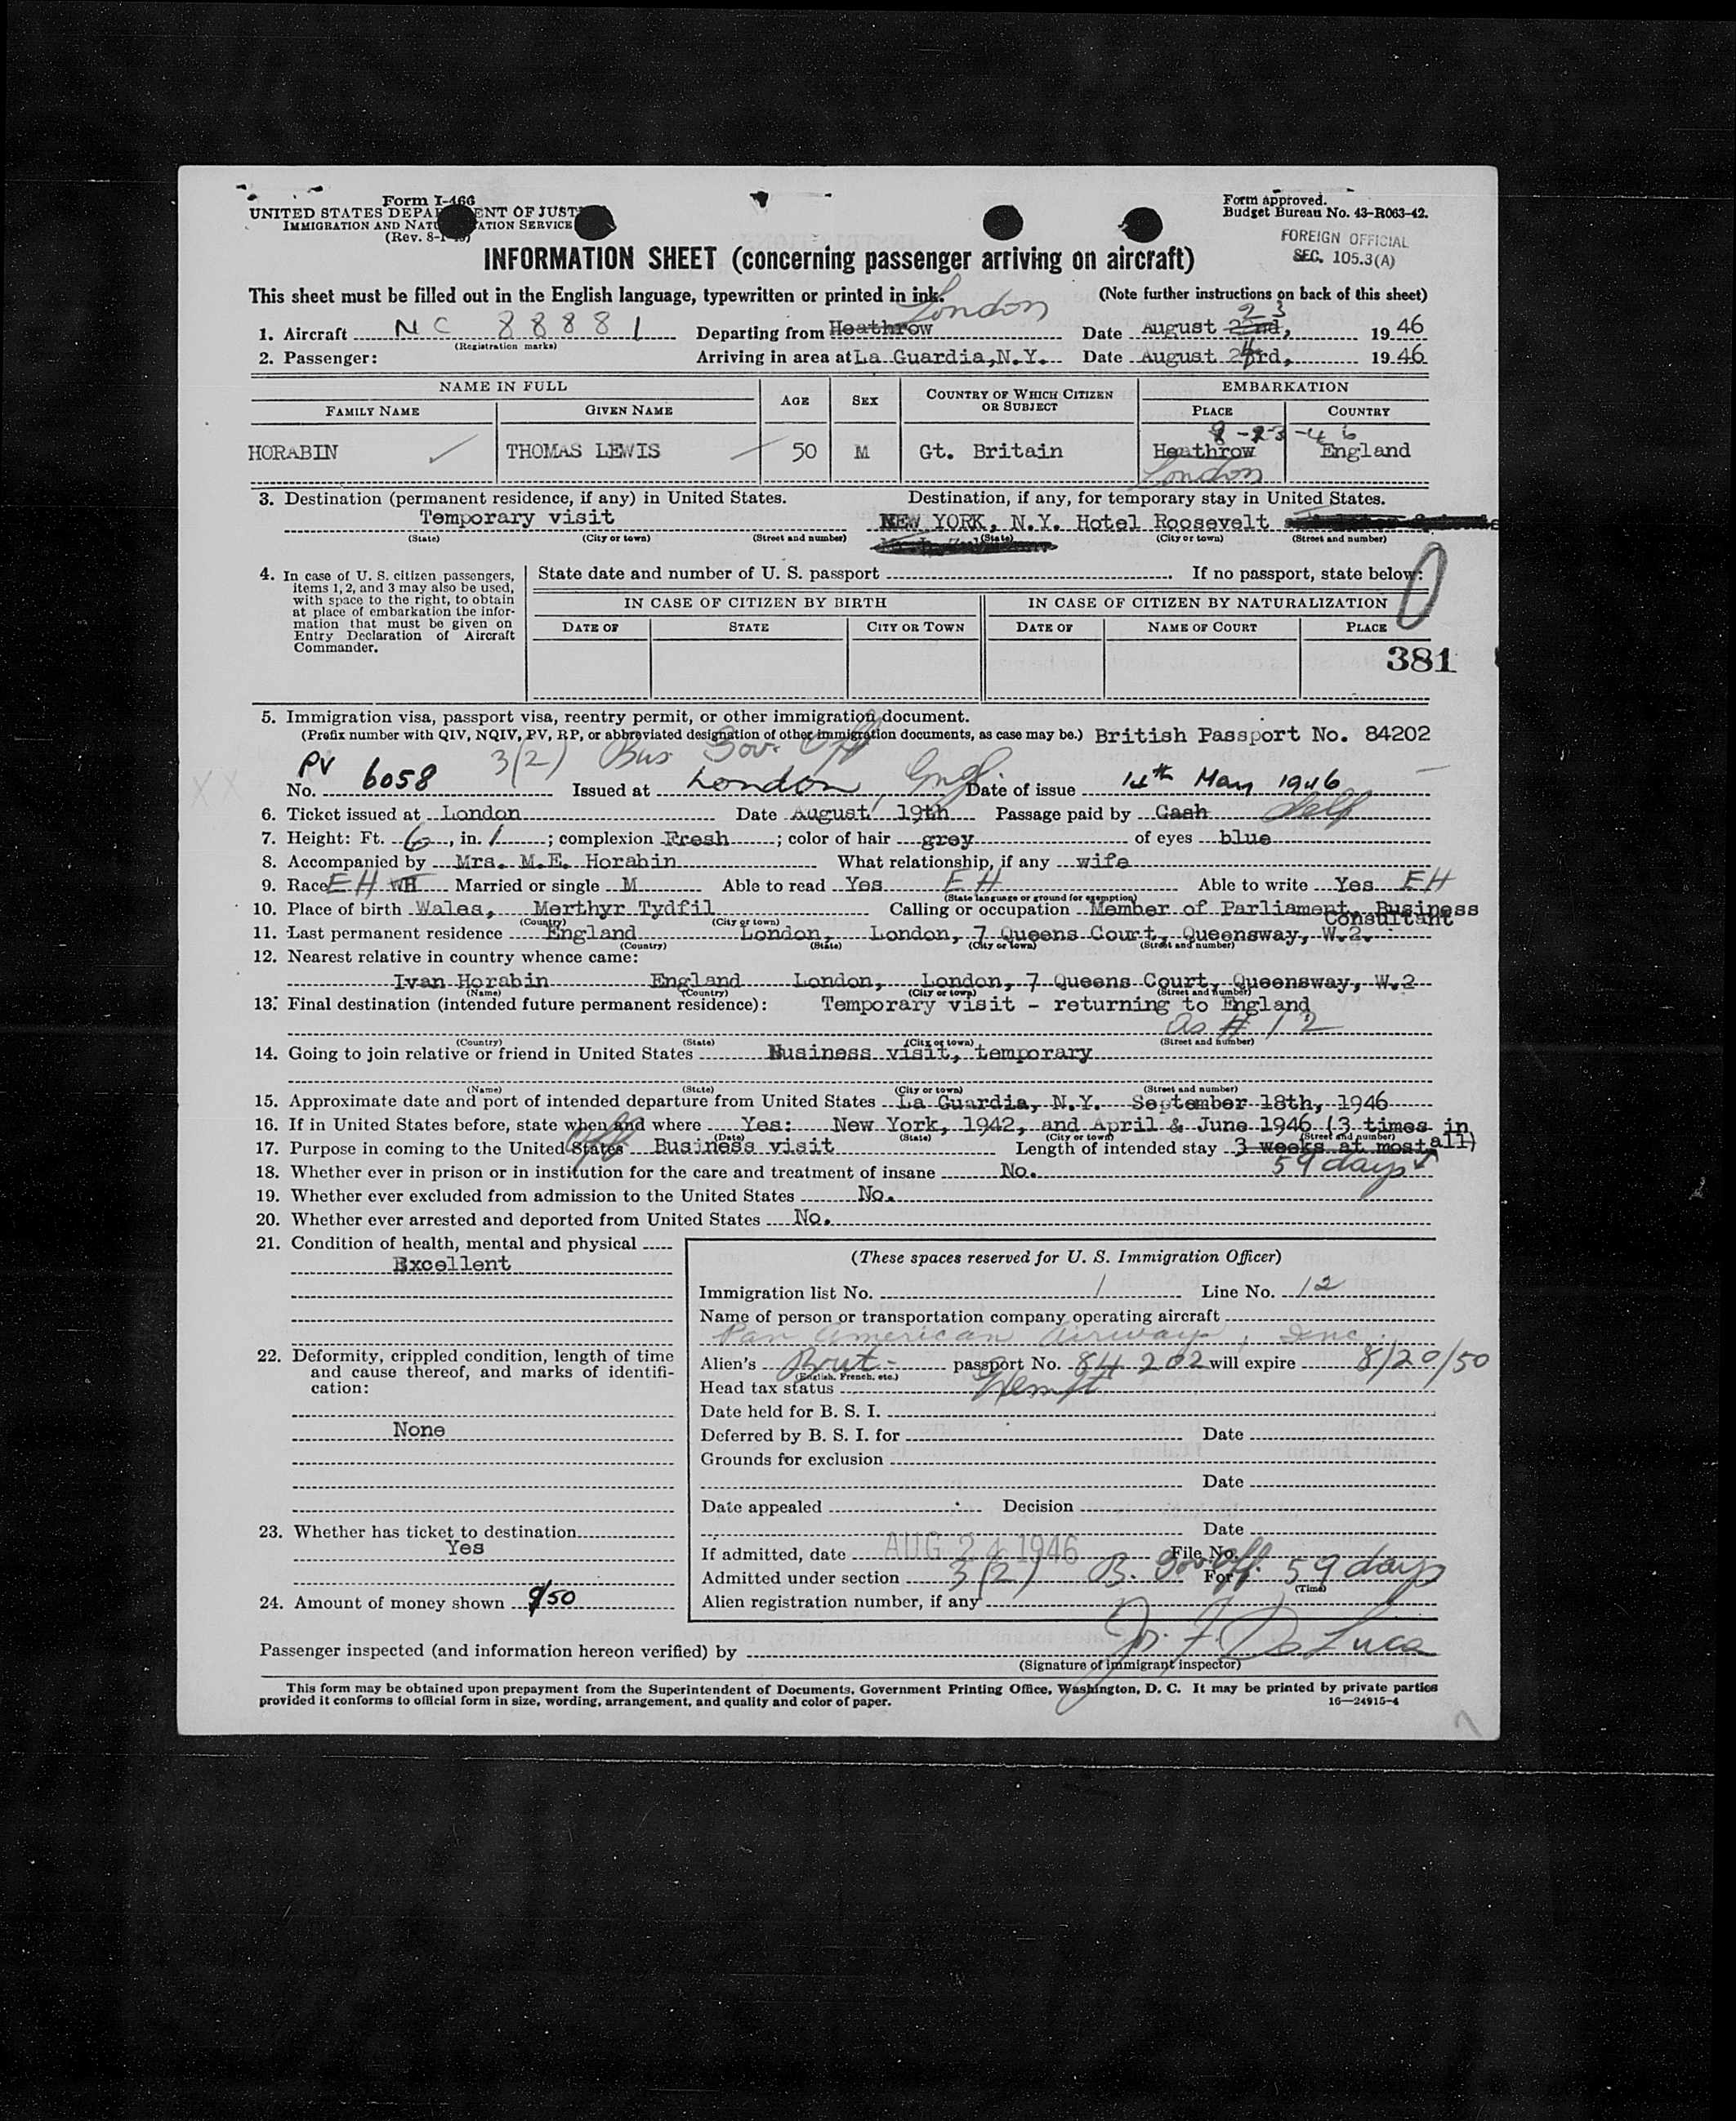 Form I-466
UNITED STATES DEPA ENT OF JUST
IMMIGRATION AND NATU ATION SERVICE
(Rev. 8-1- )
Form approved.
Budget Bureau No. 43-R063-42.
FOREIGN OFFICIAL
SEC. 105.3(A)
INFORMATION SHEET (concerning passenger arriving on aircraft)
This sheet must be filled out in the English language, typewritten or printed in ink. (Note further instructions on back of this sheet)
London
1. Aircraft NC 88881 Departing from Heathrow Date August 22nd, 23 1946
(Registration marks)
2. Passenger: Arriving in area at La Guardia, N.Y. Date August 23rd, 4 1946
NAME IN FULL AGE SEX COUNTRY OF WHICH CITIZEN OR SUBJECT EMBARKATION
FAMILY NAME GIVEN NAME PLACE COUNTRY
8-23-46
HORABIN THOMAS LEWIS 50 M Gt. Britain Heathrow England
London
3. Destination (permanent residence, if any) in United States. Destination, if any, for temporary stay in United States.
Temporary visit NEW YORK, N.Y. Hotel Roosevelt
(State) (City or town) (Street and number) (State) (City or town) (Street and number)
4. In case of U. S. citizen passengers, items 1, 2, and 3 may also be used, with space to the right, to obtain at place of embarkation the information that must be given on Entry Declaration of Aircraft Commander.
State date and number of U. S. passport If no passport, state below:
0
IN CASE OF CITIZEN BY BIRTH IN CASE OF CITIZEN BY NATURALIZATION
DATE OF STATE CITY OR TOWN DATE OF NAME OF COURT PLACE
381
5. Immigration visa, passport visa, reentry permit, or other immigration document.
(Prefix number with QIV, NQIV, PV, RP, or abbreviated designation of other immigration documents, as case may be.) British Passport No. 84202
3(2) Bus Gov. Off
No. PV 6058 Issued at London Engl Date of issue 14th May 1946
6. Ticket issued at London Date August, 19th Passage paid by Cash Self
7. Height: Ft. 6, in. 1; complexion Fresh; color of hair grey of eyes blue
8. Accompanied by Mrs. M.E. Horabin What relationship, if any wife
9. Race EH WH Married or single M Able to read Yes EH Able to write Yes EH
(State language or ground for exemption)
10. Place of birth Wales, Merthyr Tydfil Calling or occupation Member of Parliament, Business Consultant
(Country) (City or town)
11. Last permanent residence England London, London, 7 Queens Court, Queensway, W.2.
(Country) (State) (City or town) (Street and number)
12. Nearest relative in country whence came:
Ivan Horabin England London, London, 7 Queens Court, Queensway, W.2
(Name) (Country) (City or town) (Street and number)
13. Final destination (intended future permanent residence): Temporary visit - returning to England
as # 12
(Country) (State) (City or town) (Street and number)
14. Going to join relative or friend in United States Business visit, temporary
(Name) (State) (City or town) (Street and number)
15. Approximate date and port of intended departure from United States La Guardia, N.Y. September 18th, 1946
16. If in United States before, state when and where Yes: New York, 1942, and April & June 1946 (3 times in all)
(Date) (State) (City or town) (Street and number)
17. Purpose in coming to the United States Off Business visit Length of intended stay 3 weeks at most
59 days
18. Whether ever in prison or in institution for the care and treatment of insane No.
19. Whether ever excluded from admission to the United States No.
20. Whether ever arrested and deported from United States No.
21. Condition of health, mental and physical
Excellent
22. Deformity, crippled condition, length of time and cause thereof, and marks of identification:
None
23. Whether has ticket to destination
Yes
24. Amount of money shown $50
(These spaces reserved for U. S. Immigration Officer)
Immigration list No. 1 Line No. 12
Name of person or transportation company operating aircraft
Pan American Airways, Inc.
Alien's Brit- passport No. 84202 will expire 8/20/50
(English, French, etc.)
Head tax status Exempt
Date held for B. S. I.
Deferred by B. S. I. for Date
Grounds for exclusion
Date
Date appealed Decision
Date
If admitted, date AUG 24 1946 File No.
Admitted under section 3(2) B. Gov Off. For 59 days
(Time)
Alien registration number, if any
Passenger inspected (and information hereon verified) by De Luca
(Signature of immigrant inspector)
This form may be obtained upon prepayment from the Superintendent of Documents, Government Printing Office, Washington, D. C. It may be printed by private parties
provided it conforms to official form in size, wording, arrangement, and quality and color of paper. 16—24915-4